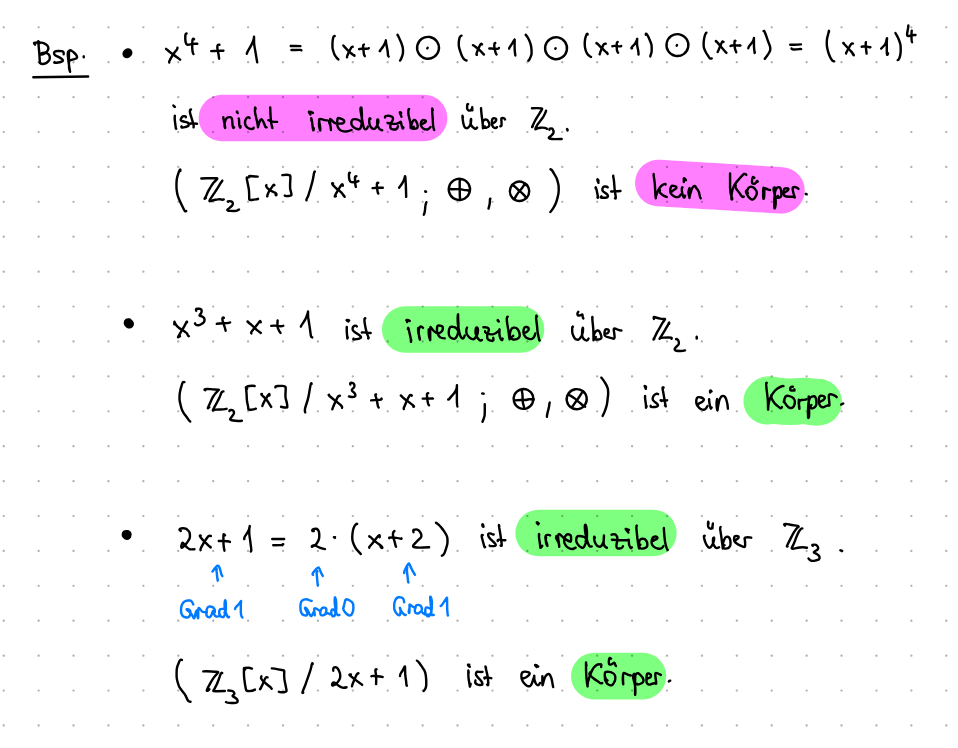 Bsp. • x⁴ + 1 = (x+1) ⊙ (x+1) ⊙ (x+1) ⊙ (x+1) = (x+1)⁴
ist nicht irreduzibel über ℤ₂.
( ℤ₂[x] / x⁴ + 1 ; ⊕ , ⊗ ) ist kein Körper.
• x³ + x + 1 ist irreduzibel über ℤ₂.
( ℤ₂[x] / x³ + x + 1 ; ⊕ , ⊗ ) ist ein Körper.
• 2x + 1 = 2 · (x+2) ist irreduzibel über ℤ₃ .
↑ ↑ ↑
Grad 1 Grad 0 Grad 1
( ℤ₃[x] / 2x + 1 ) ist ein Körper.